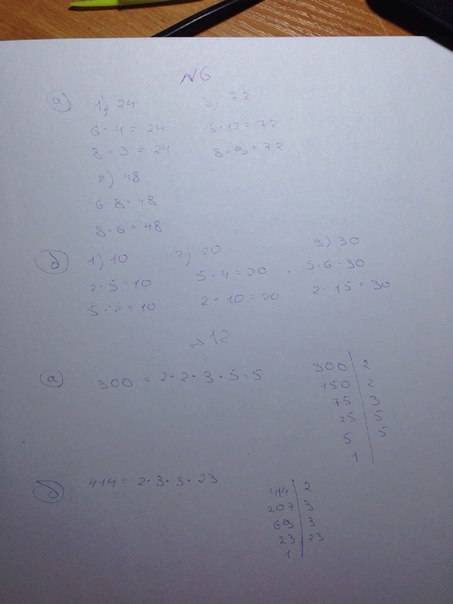 №6
а) 1) 24
6 · 4 = 24
8 · 3 = 24
2) 48
6 · 8 = 48
8 · 6 = 48
3) 72
6 · 12 = 72
8 · 9 = 72
б) 1) 10
2 · 5 = 10
5 · 2 = 10
2) 20
5 · 4 = 20
2 · 10 = 20
3) 30
5 · 6 = 30
2 · 15 = 30
№12
а) 300 = 2 · 2 · 3 · 5 · 5
300 | 2
150 | 2
75 | 3
25 | 5
5 | 5
1 |
б) 414 = 2 · 3 · 3 · 23
414 | 2
207 | 3
69 | 3
23 | 23
1 |